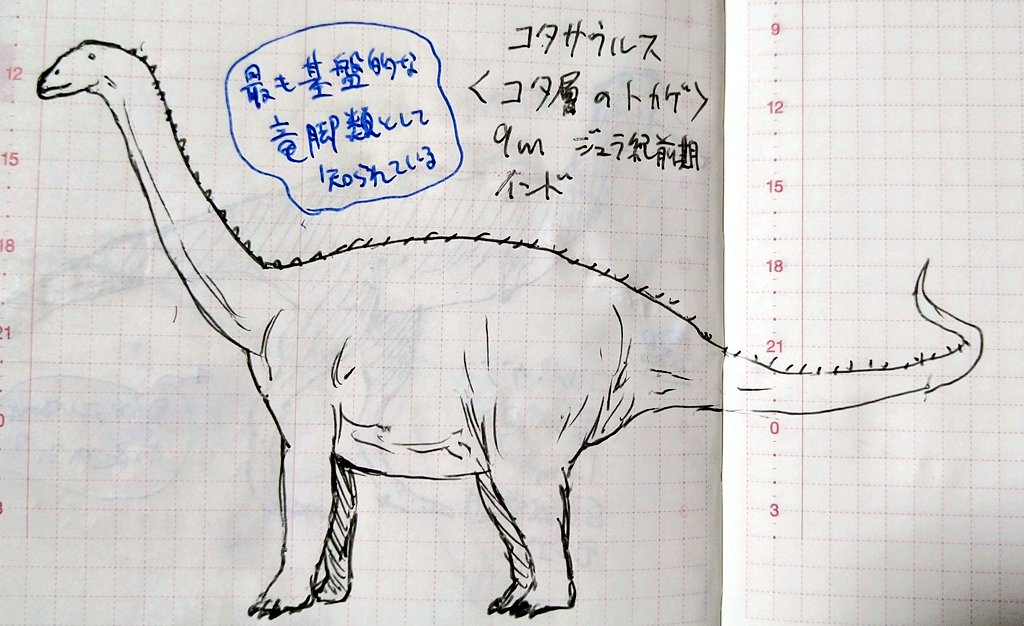 最も基盤的な
竜脚類として
知られている
コタサウルス
<コタ層のトカゲ>
9m ジュラ紀前期
インド
12
15
18
21
0
3
9
12
15
18
21
0
3